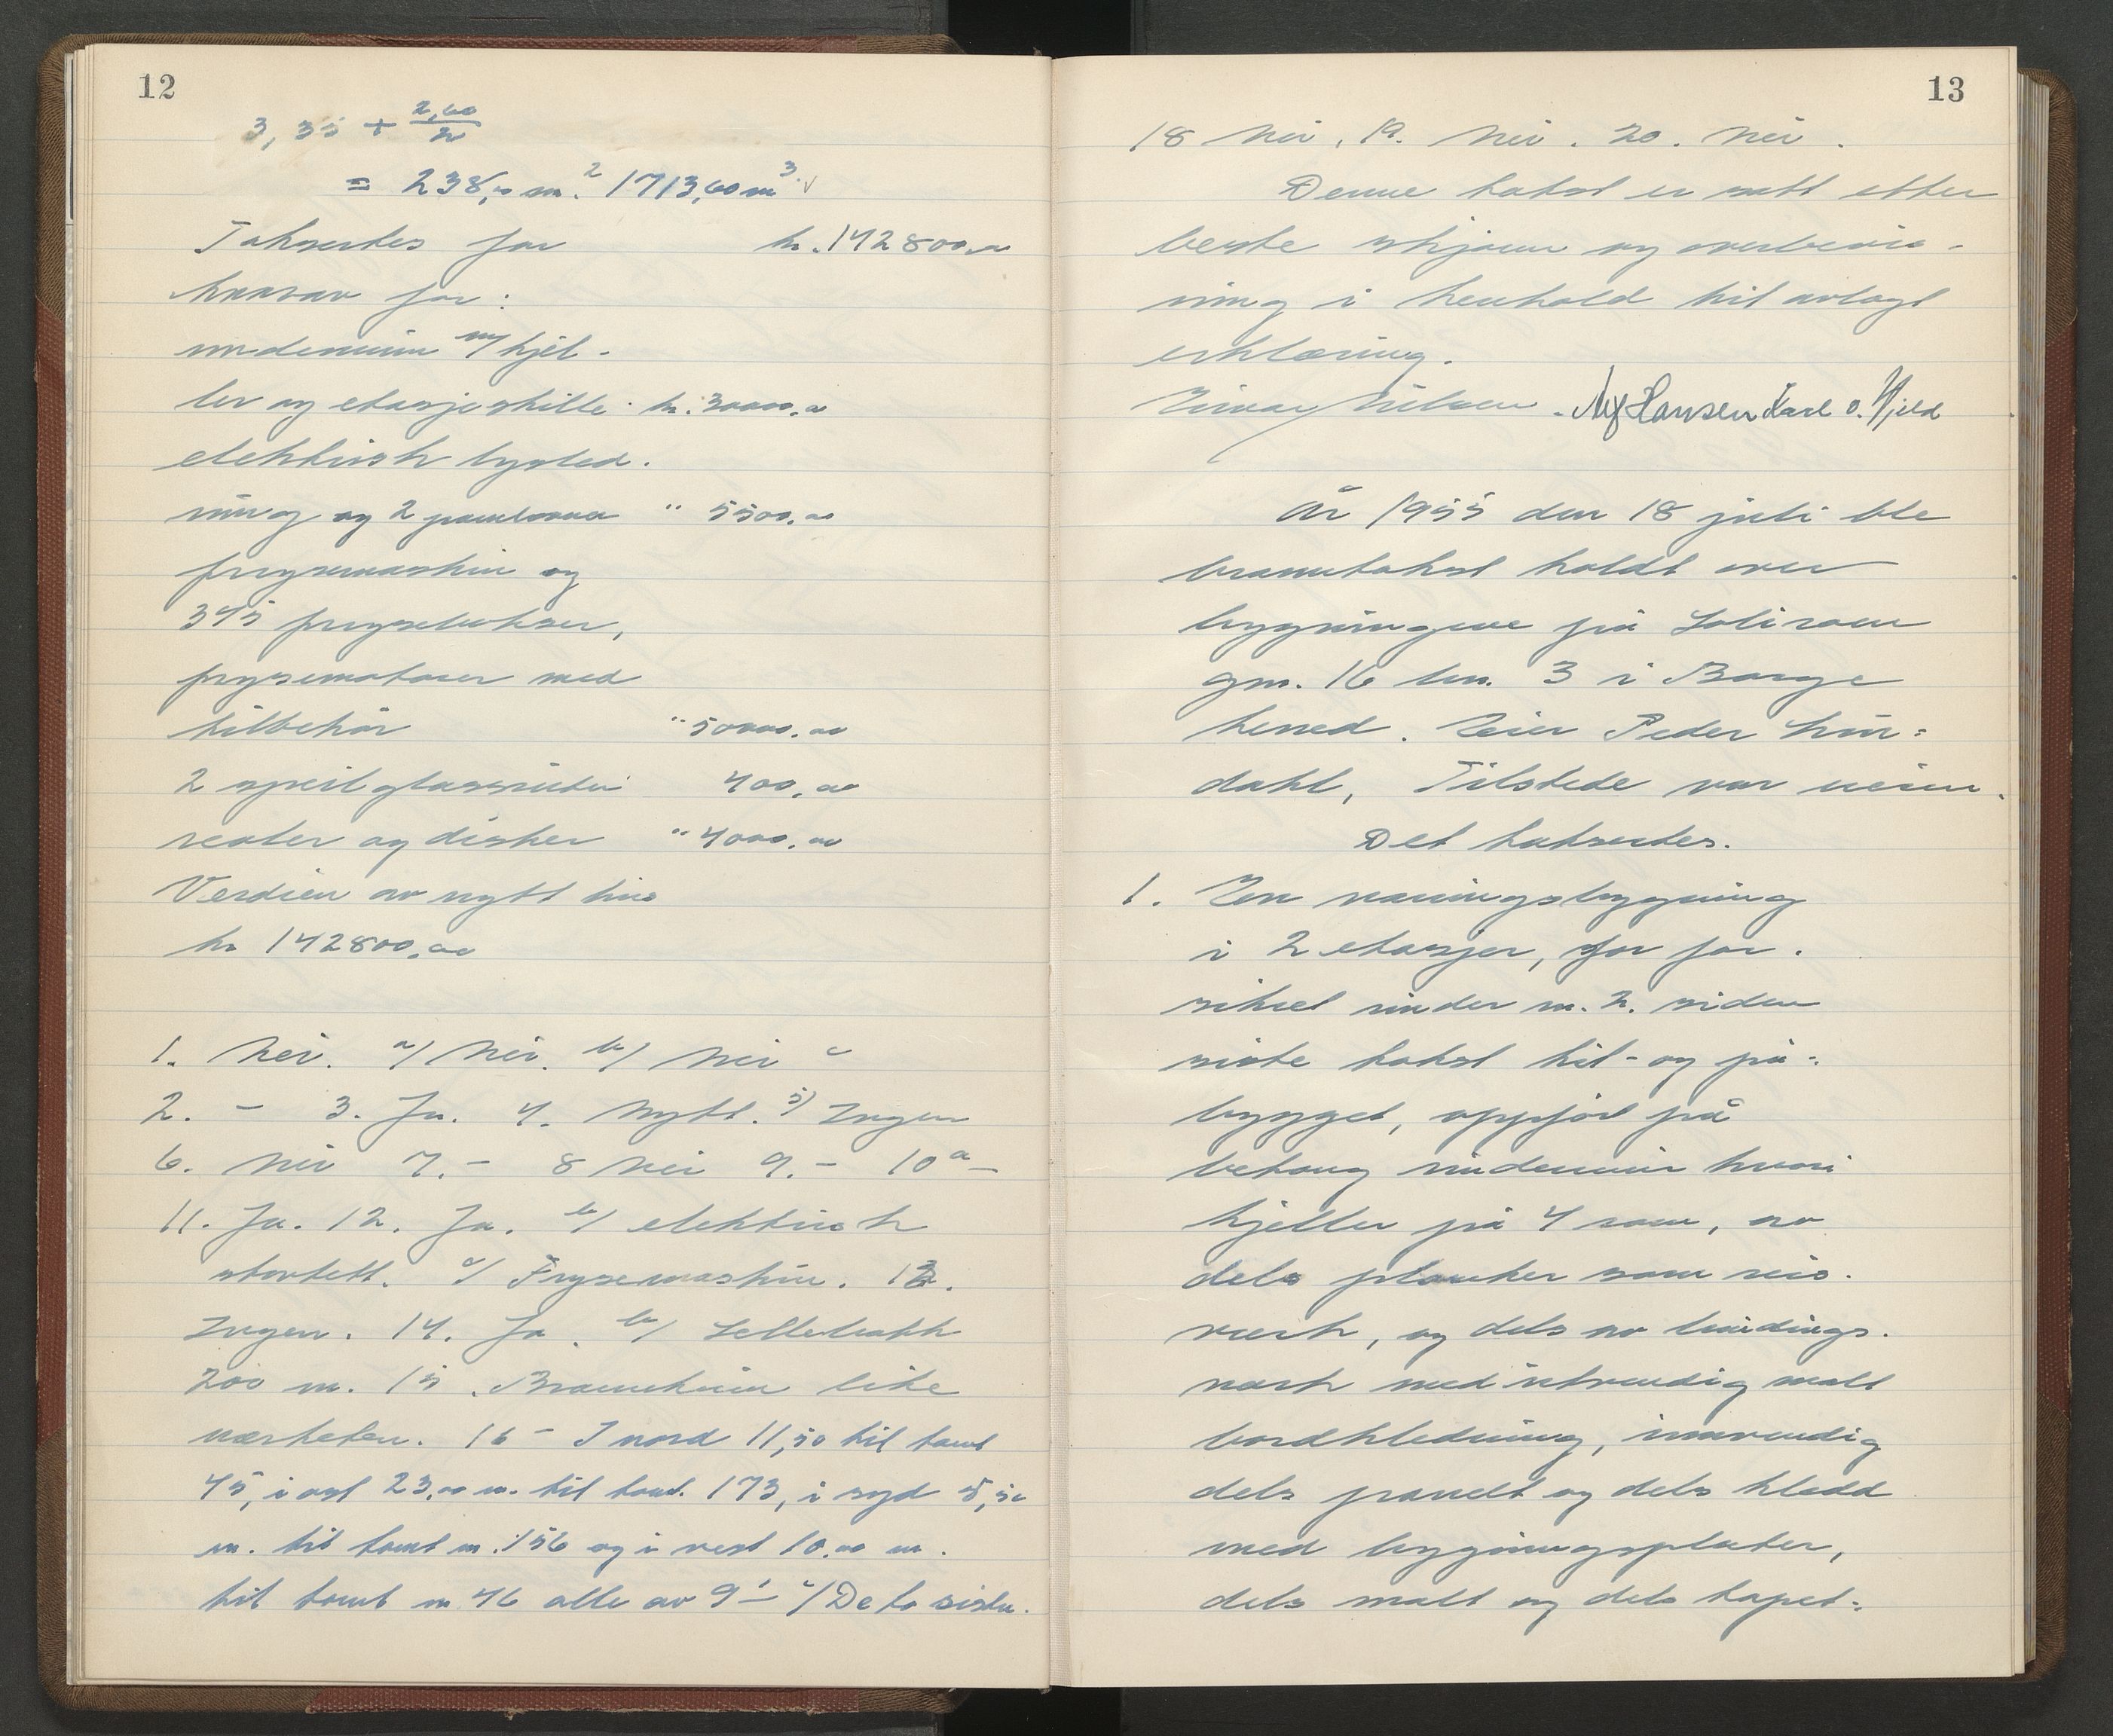 12
3,35 + 2,60/2
= 238,00 m.² 1713,60 m³
Takseres for kr. 142800,00
hvorav for:
undemur m/ kjel-
ler og etasjeskille kr. 30000,00
elektrisk lysled-
ning og 2 " 5500,00
frysemaskin og
345 frysebokser,
frysemotorer med
tilbehör " 50000,00
2 speilglassruter 400,00
reoler og disker " 4000,00
Verdien av nytt hus
kr 142800,00
1. Nei. a/ Nei. b/ Nei c
2. - 3. Ja. 4. Nytt. 5) Ingen
6. Nei 7. - 8 Nei 9. - 10 a -
11. Ja. 12. Ja. b/ elektrisk
c/ Frysemaskin. 13.
Ingen. 14. Ja. b/ Sellebakk
200 m. 15. i like
nærheten. 16 - I nord 11,50 til tomt
45, i øst 23,00 m. til tomt. 173, i syd 5,50
m. til tomt nr. 156 og i vest 10,00 m.
til tomt nr 46 alle av 9/1 - c/ De to siste.
13
18 Nei, 19. Nei. 20. Nei.
Denne takst er satt etter
beste skjönn og overbevis-
ning i henhold til avlagt
erklæring.
Einar Nilsen. Alf Hansen Karl O. Hjeld
År 1955 den 18 juli ble
branntakst holdt over
bygningene på
gnr. 16 bnr. 3 i Borge
herred. Eier Peder Lun-
dahl, Tilstede var eieren.
Det takseres.
1. En våningsbygning
i 2 etasjer, før for-
sikret under nr. 2. siden
siste takst til- og på-
bygget, oppfört på
betong undemur hvori
kjeller på 4 rom, av
dels planker som reis-
verk, og dels av bindings-
verk med utvendig malt
bordkledning, innvendig
dels panelt og dels kledd
med bygningsplater,
dels malt og dels tapet-